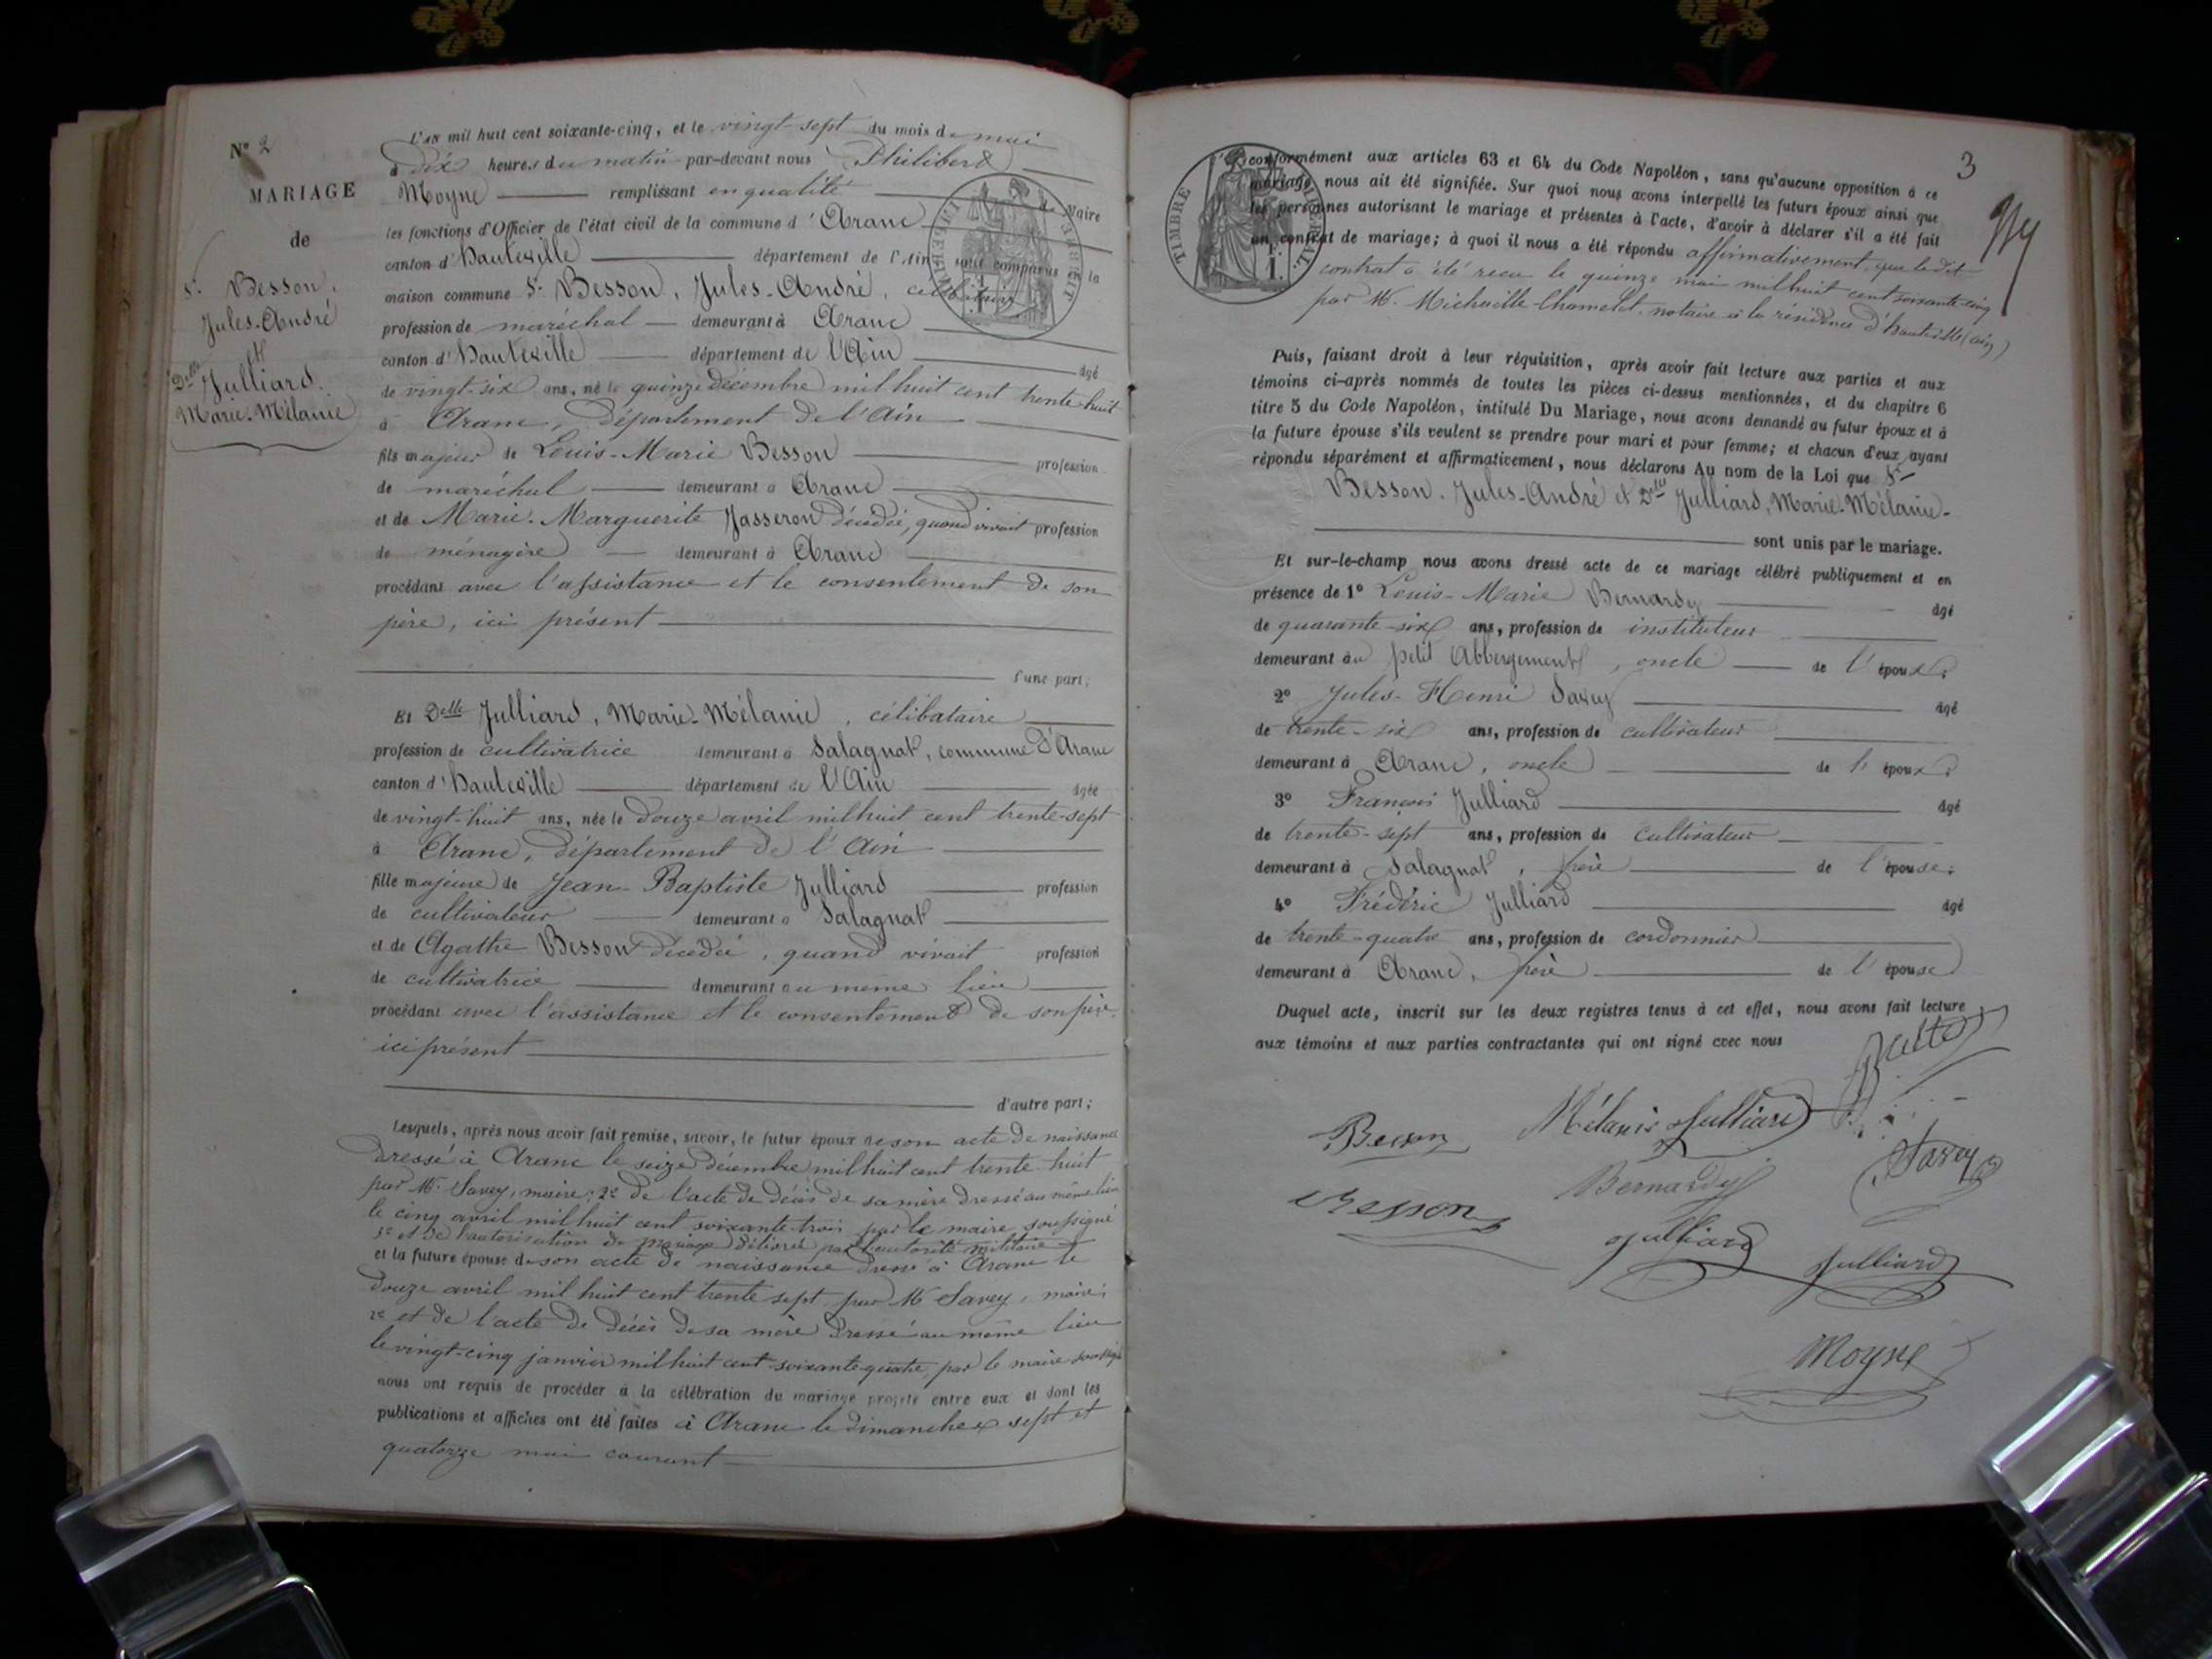 N° 2
MARIAGE
de
Sr Besson,
Jules-André
et
Delle Julliard.
Marie-Mélanie
L'an mil huit cent soixante-cinq, et le vingt-sept du mois de mai
à dix heures du matin par-devant nous Philibert
Moyne remplissant en qualité de Maire
les fonctions d'Officier de l'état civil de la commune d'Aranc
canton d'hauteville département de l'Ain sont comparus à la
maison commune Sr Besson, Jules-André, célibataire
profession de maréchal demeurant à Aranc
canton d'hauteville département de l'Ain âgé
de vingt-six ans, né le quinze décembre mil huit cent trente-huit
à Aranc, département de l'Ain
fils majeur de Louis-Marie Besson profession
de maréchal demeurant à Aranc
et de Marie-Marguerite Jasseron décédée, quand vivait profession
de ménagère demeurant à Aranc
procédant avec l'assistance et le consentement de son
père, ici présent
d'une part;
Et Delle Julliard, Marie-Mélanie, célibataire
profession de cultivatrice demeurant à Salagnat, commune d'Aranc
canton d'hauteville département de l'Ain âgée
de vingt-huit ans, née le douze avril mil huit cent trente-sept
à Aranc, département de l'Ain
fille majeure de Jean-Baptiste Julliard profession
de cultivateur demeurant à Salagnat
et de Agathe Besson décédée, quand vivait profession
de cultivatrice demeurant au même lieu
procédant avec l'assistance et le consentement de son père
ici présent
d'autre part;
Lesquels, après nous avoir fait remise, savoir, le futur époux de son acte de naissance
dressé à Aranc le seize décembre mil huit cent trente-huit
par Mr Savey, maire; 2° de l'acte de décès de sa mère dressé au même lieu
le cinq avril mil huit cent soixante-trois par le maire soussigné
3° et de l'autorisation de mariage délivrée par l'autorité militaire
et la future épouse de son acte de naissance dressé à Aranc le
douze avril mil huit cent trente sept par Mr Savey, maire;
2° et de l'acte de décès de sa mère dressé au même lieu
le vingt-cinq janvier mil huit cent soixante quatre, par le maire soussigné
nous ont requis de procéder à la célébration du mariage projeté entre eux et dont les
publications et affiches ont été faites à Aranc le dimanches sept et
quatorze mai courant
3
TIMBRE IMPÉRIAL
conformément aux articles 63 et 64 du Code Napoléon, sans qu'aucune opposition à ce
mariage nous ait été signifiée. Sur quoi nous avons interpellé les futurs époux ainsi que
les personnes autorisant le mariage et présentes à l'acte, d'avoir à déclarer s'il a été fait
un contrat de mariage; à quoi il nous a été répondu affirmativement, que ledit
contrat a été recu le quinze mai mil huit cent soixante cinq
par Me notaire à la résidence d'hauteville (ain)
Puis, faisant droit à leur réquisition, après avoir fait lecture aux parties et aux
témoins ci-après nommés de toutes les pièces ci-dessus mentionnées, et du chapitre 6
titre 5 du Code Napoléon, intitulé Du Mariage, nous avons demandé au futur époux et à
la future épouse s'ils veulent se prendre pour mari et pour femme; et chacun d'eux ayant
répondu séparément et affirmativement, nous déclarons Au nom de la Loi que Sr
Besson. Jules-André et Delle Julliard, Marie-Mélanie-
sont unis par le mariage.
Et sur-le-champ nous avons dressé acte de ce mariage célébré publiquement et en
présence de 1° Louis-Marie Bernardy âgé
de quarante-six ans, profession de instituteur
demeurant au petit Abbergement, oncle de l'époux;
2° Jules-Henri Savey âgé
de trente-six ans, profession de cultivateur
demeurant à Aranc, oncle de l'époux;
3° François Julliard âgé
de trente-sept ans, profession de cultivateur
demeurant à Salagnat, frère de l'épouse;
4° Frédéric Julliard âgé
de trente-quatre ans, profession de cordonnier
demeurant à Aranc, frère de l'épouse
Duquel acte, inscrit sur les deux registres tenus à cet effet, nous avons fait lecture
aux témoins et aux parties contractantes qui ont signé avec nous
Besson Mélanie Julliard
Besson Bernardy Savey
Julliard Julliard
Moyne